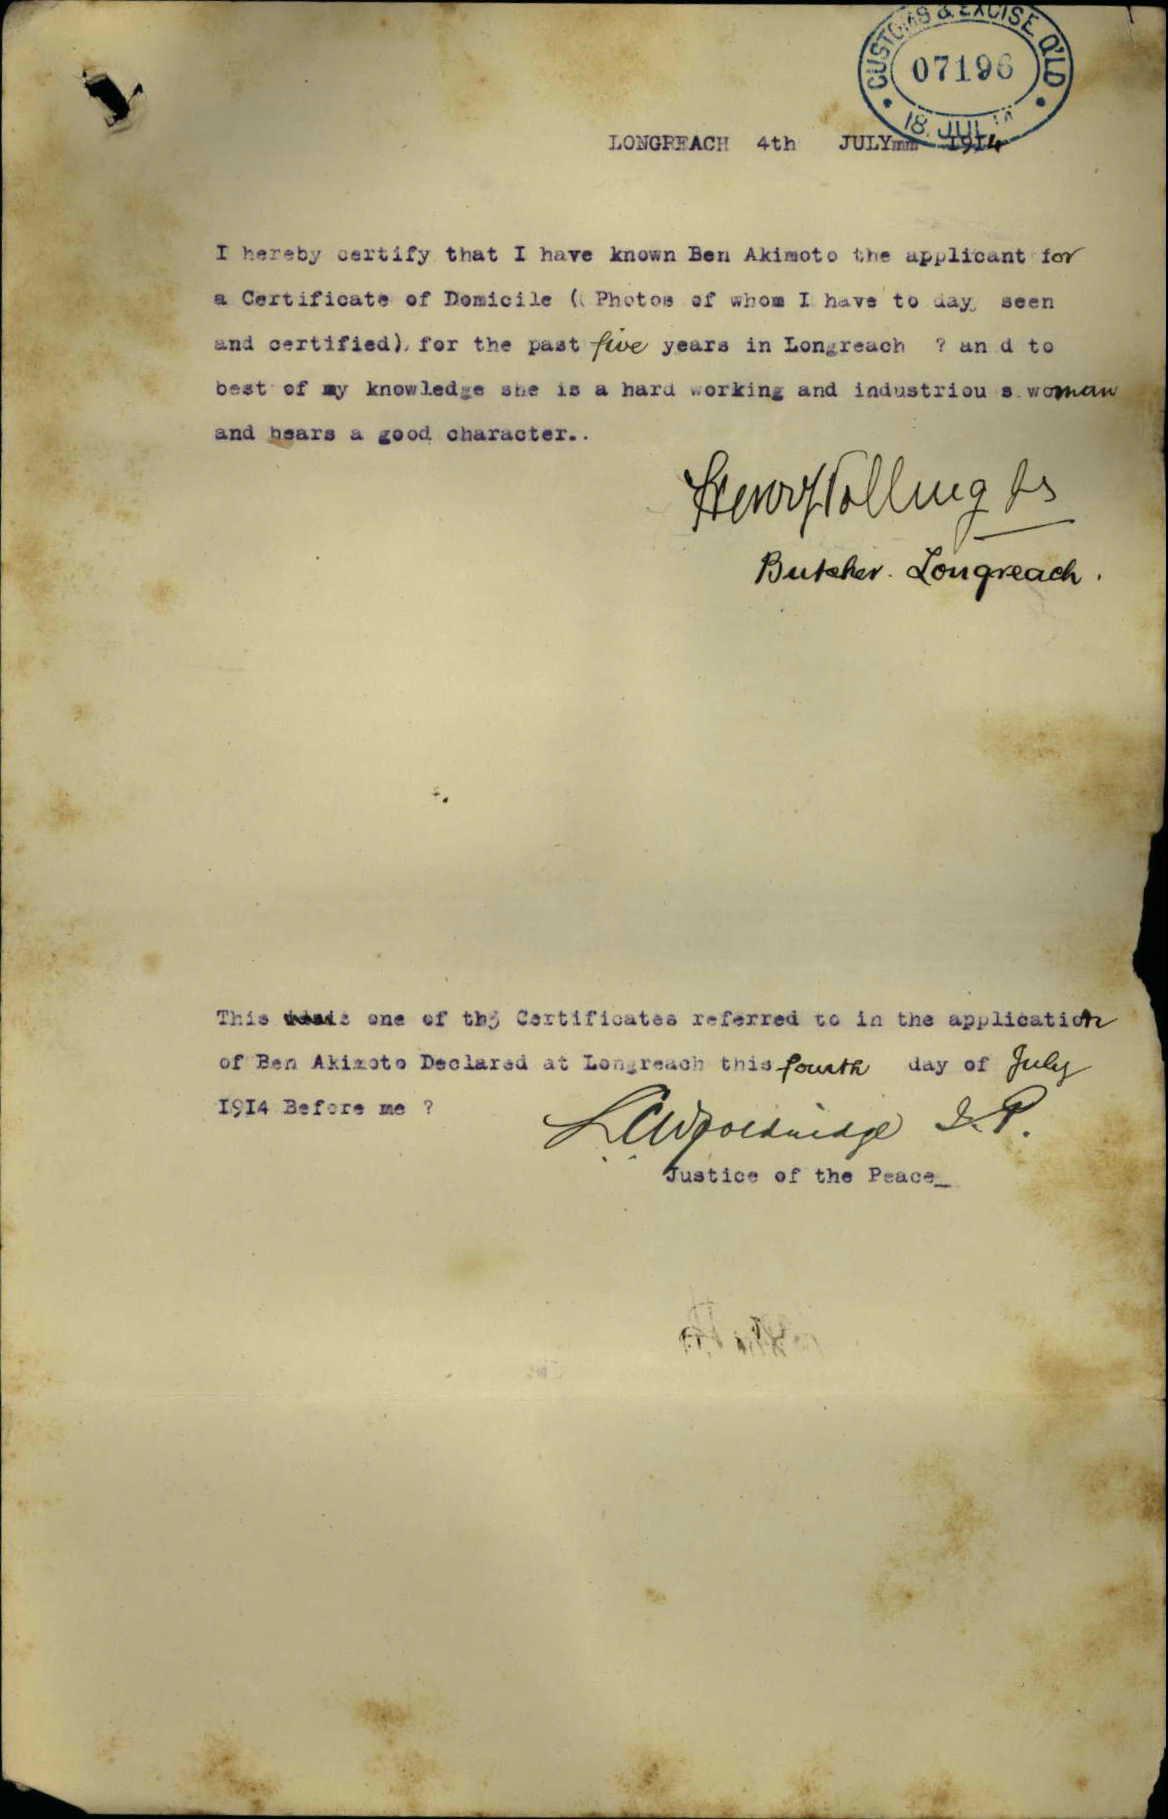 CUSTOMS & EXCISE Q'LD
07196
18. JUL 14
LONGREACH 4th JULYmm 1914
I hereby certify that I have known Ben Akimoto the applicant for
a Certificate of Domicile (( Photos of whom I have to day, seen
and certified), for the past five years in Longreach ? an d to
best of my knowledge she is a hard working and industriou s woman
and bears a good character..
Henry
Butcher. Longreach.
This is one of th3 Certificates referred to in the application
of Ben Akimoto Declared at Longreach this fourth day of July
1914 Before me ?
J.P.
Justice of the Peace_